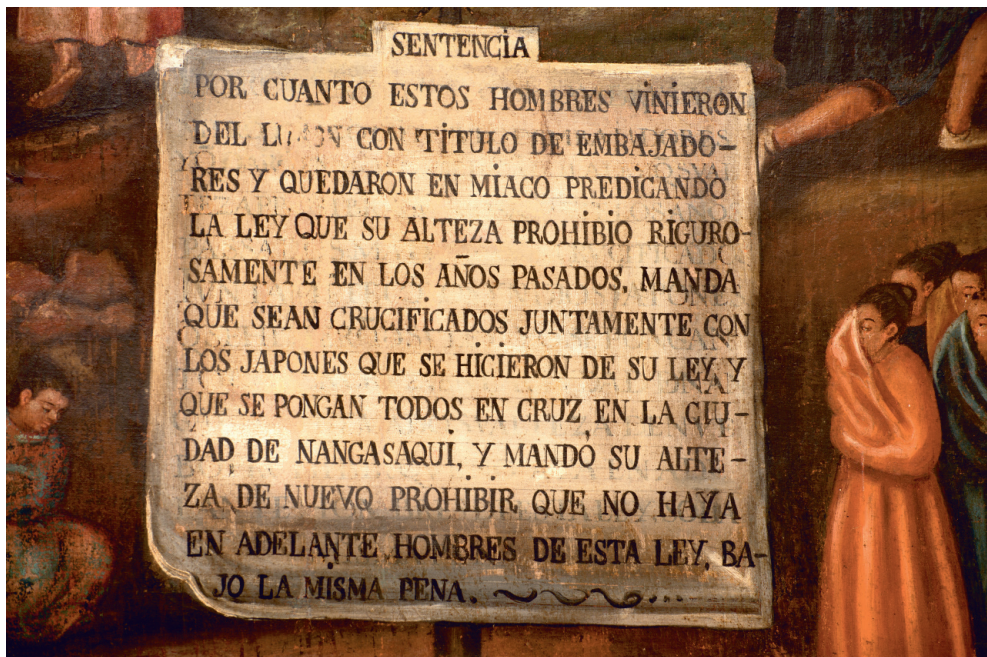 SENTENCIA
POR CUANTO ESTOS HOMBRES VINIERON
DEL CON TÍTULO DE EMBAJADO-
RES Y QUEDARON EN MIACO PREDICANDO
LA LEY QUE SU ALTEZA PROHIBIO RIGURO-
SAMENTE EN LOS AÑOS PASADOS, MANDA
QUE SEAN CRUCIFICADOS JUNTAMENTE CON
LOS JAPONES QUE SE HICIERON DE SU LEY, Y
QUE SE PONGAN TODOS EN CRUZ EN LA CIU-
DAD DE NANGASAQUI, Y MANDÓ SU ALTE-
ZA DE NUEVO PROHIBIR QUE NO HAYA
EN ADELANTE HOMBRES DE ESTA LEY, BA-
JO LA MISMA PENA.